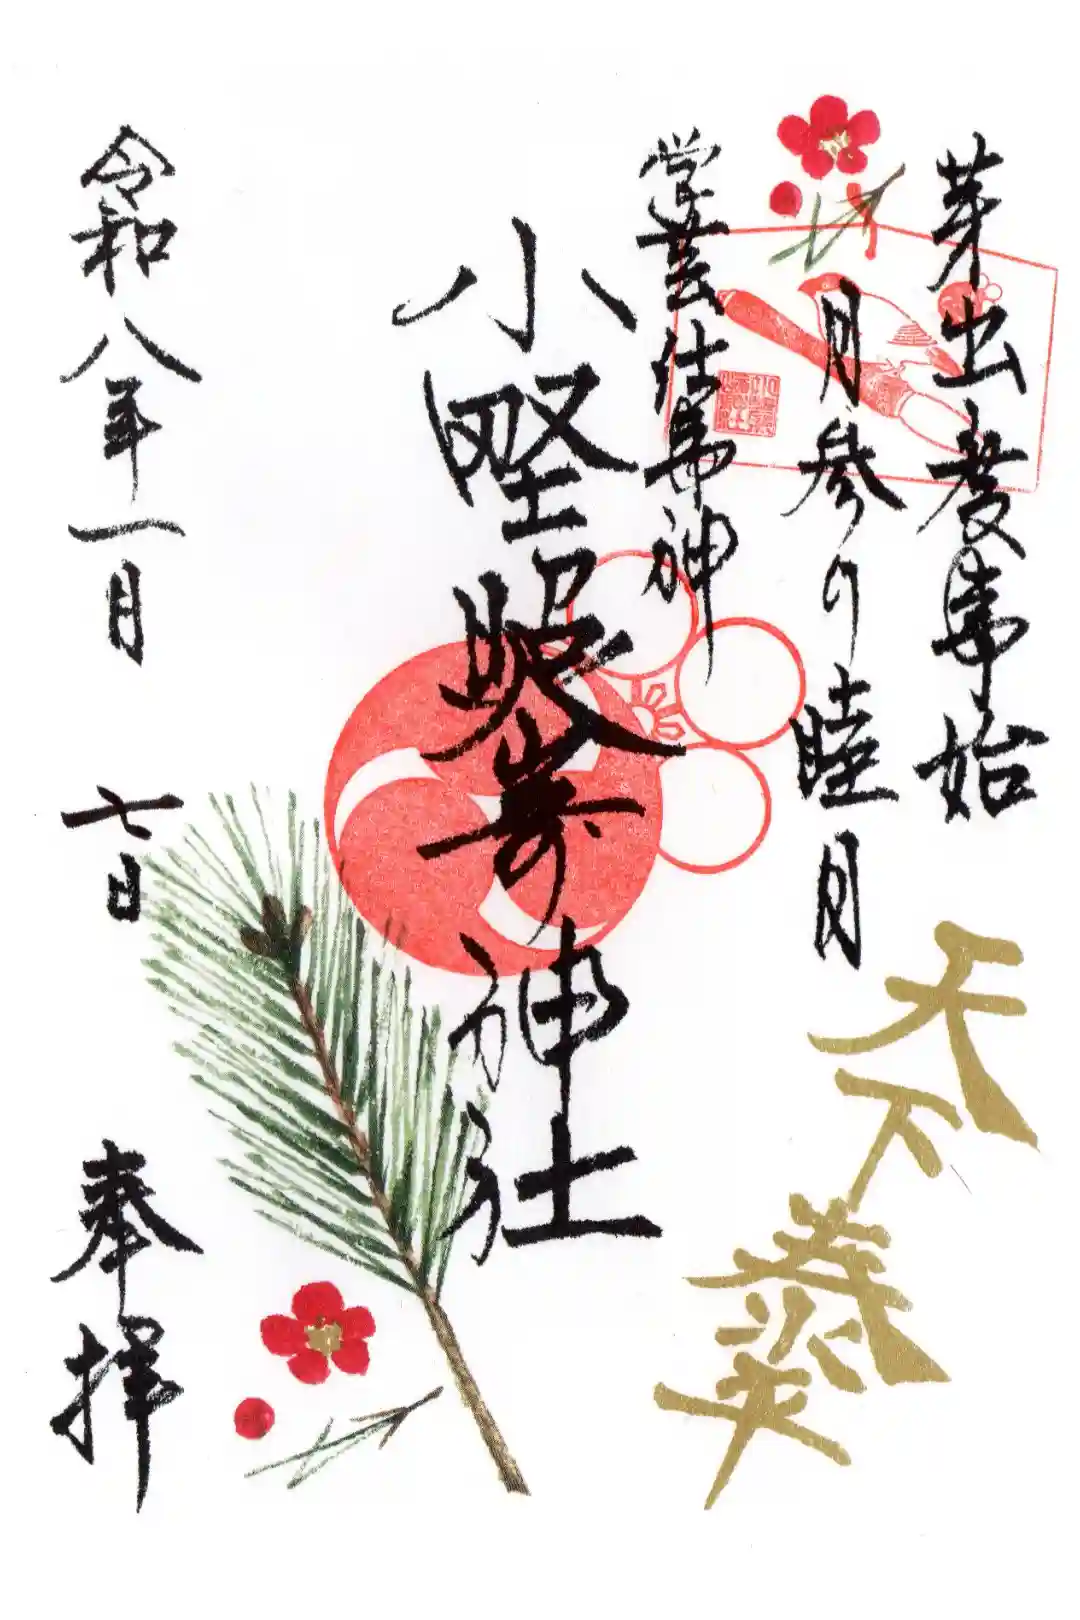 芽出度事始
月参り 睦月
学芸仕事神
小野照崎神社
令和八年一月 七日 奉拝
天下泰平